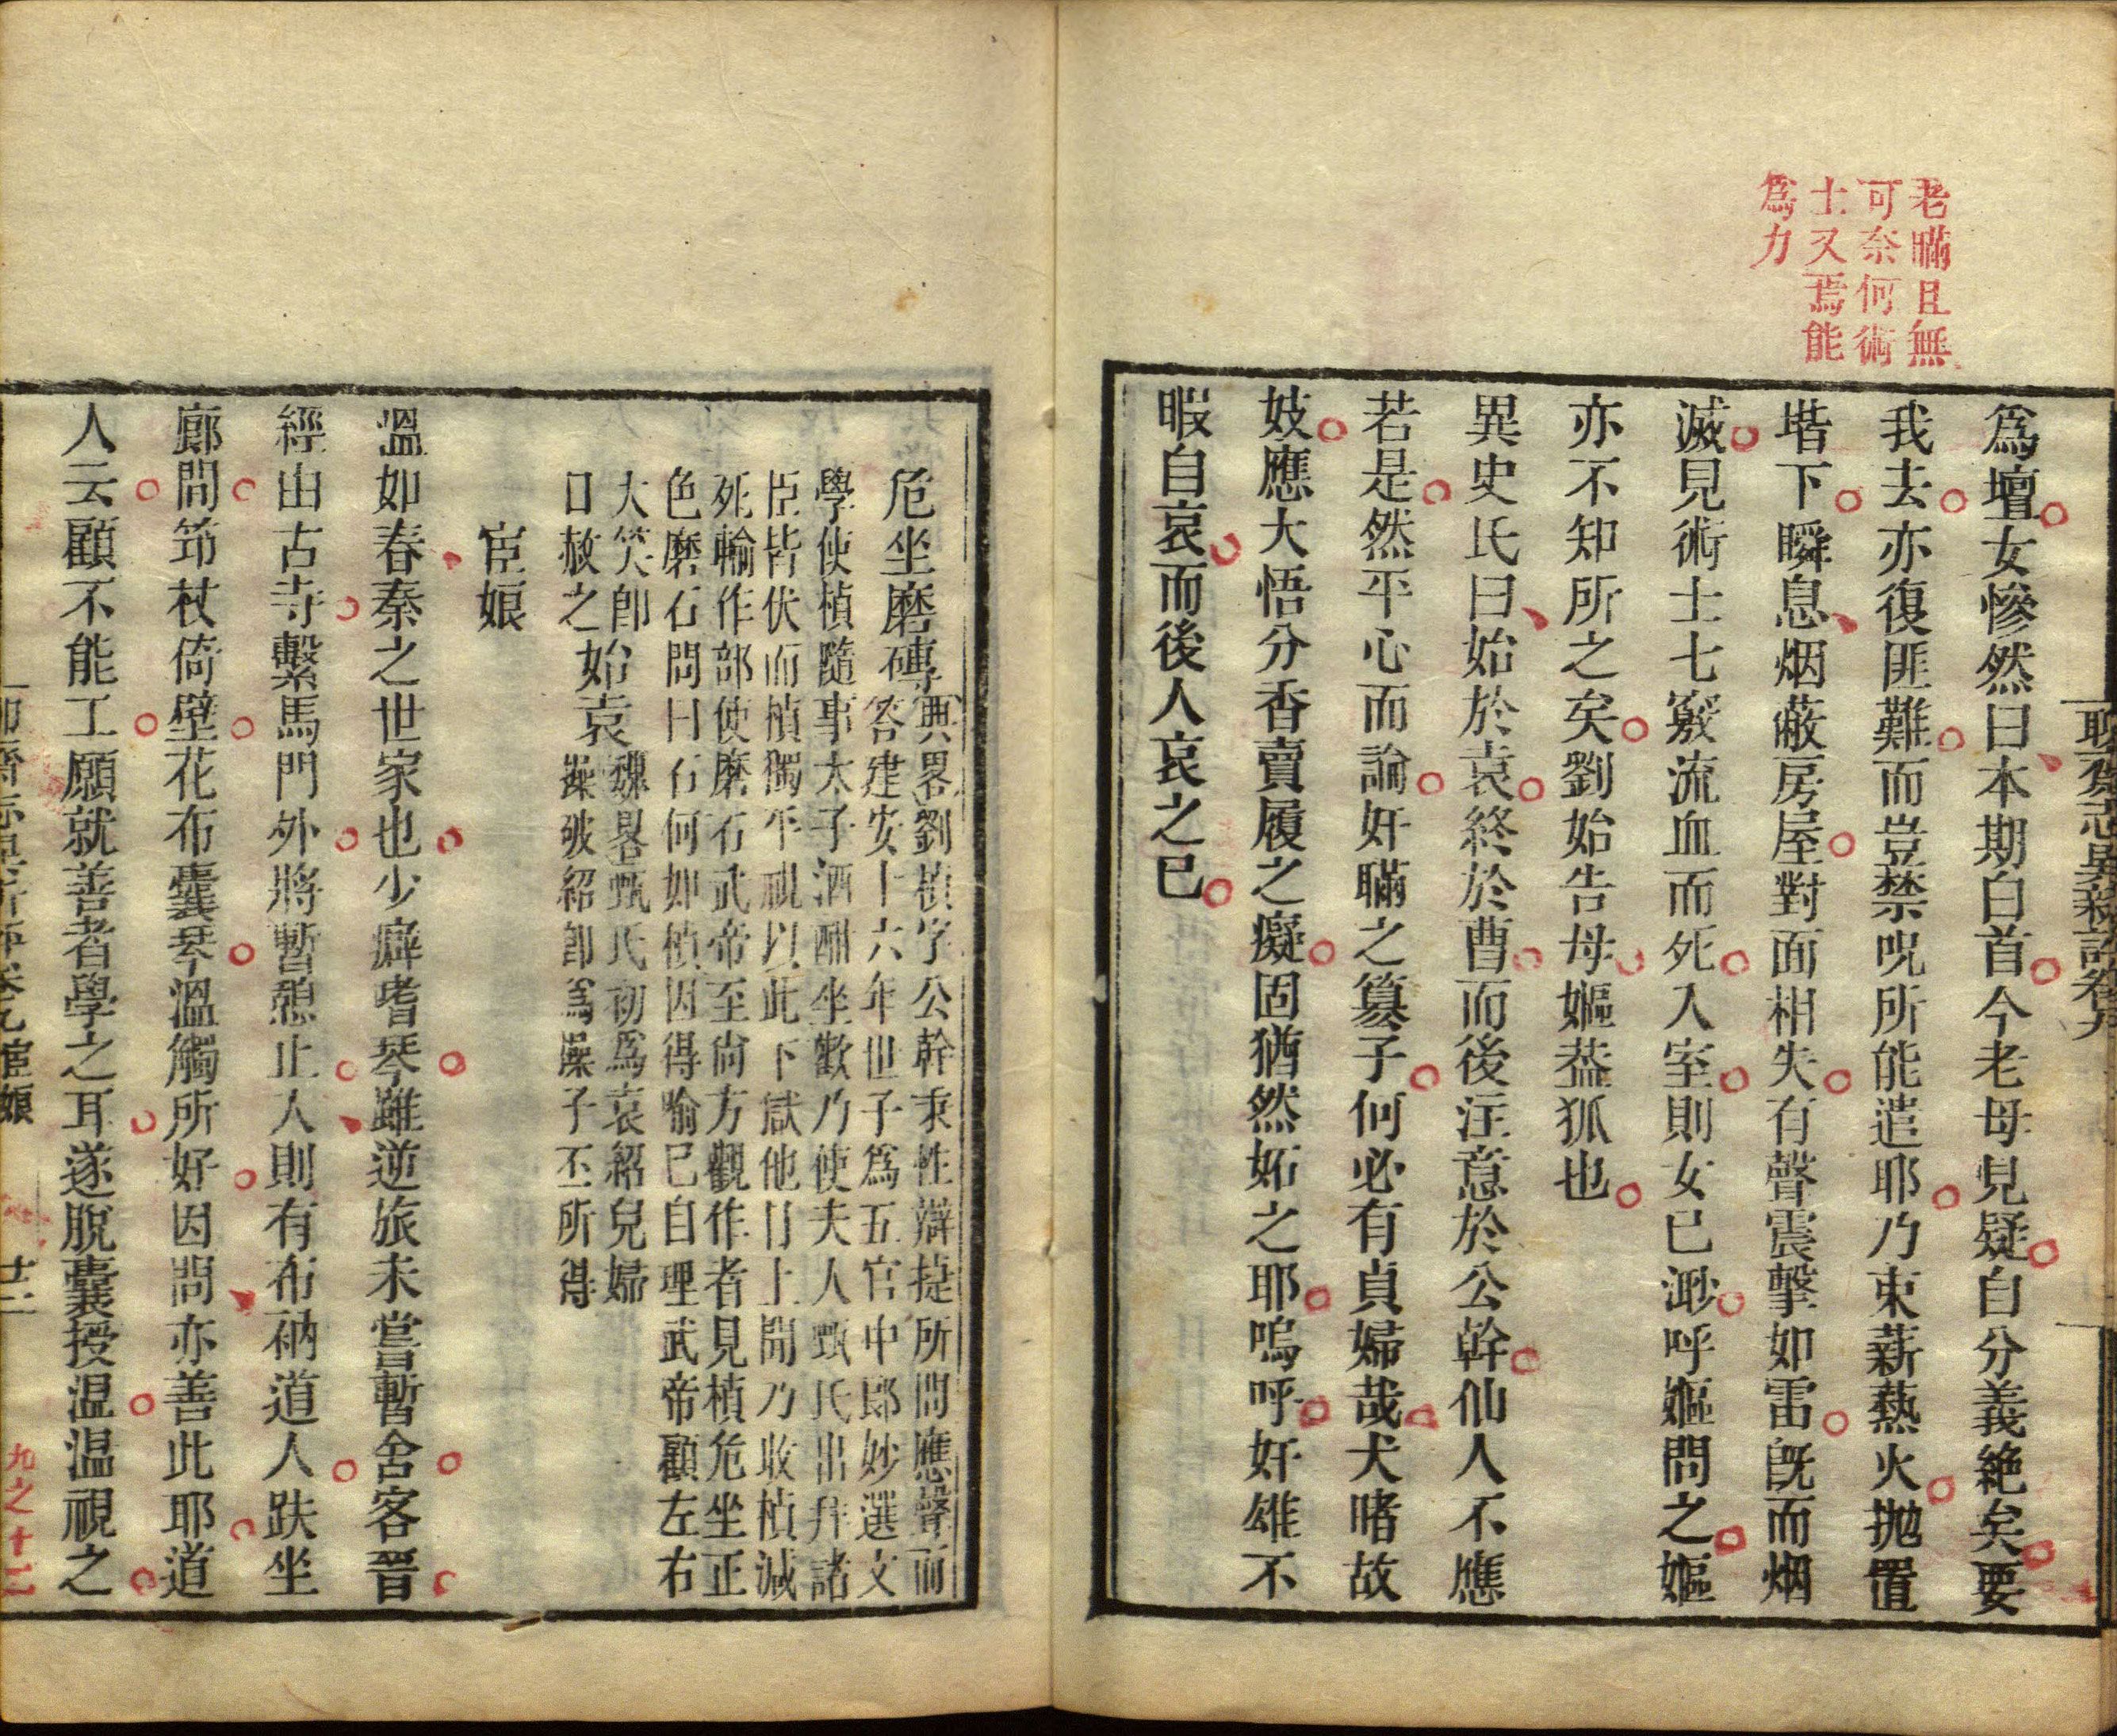 老瞞且無
可奈何術
士又焉能
爲力
聊齋志異新評卷九
爲壇女慘然曰本期白首今老母見疑自分義絶矣要
我去亦復匪難而豈禁呪所能遣耶乃束薪爇火拋置
堦下瞬息烟蔽房屋對面相失有聲震擊如雷旣而烟
滅見術士七竅流血而死入室則女已渺呼嫗問之嫗
亦不知所之矣劉始告母嫗葢狐也
異史氏曰始於袁終於曹而後注意於公幹仙人不應
若是然平心而論奸瞞之篡子何必有貞婦哉犬睹故
妓應大悟分香賣履之癡固猶然妬之耶嗚呼奸雄不
暇自哀而後人哀之已
危坐磨磚典畧劉楨字公幹秉性辯捷所問應聲而
答建安十六年世子爲五官中郎妙選文
學使楨隨事太子酒酣坐歡乃使夫人甄氏出拜諸
臣皆伏而楨獨平視以此下獄他日上聞乃收楨減
死輸作部使磨石武帝至尙方觀作者見楨危坐正
色磨石問曰石何如楨因得喻己自理武帝顧左右
大笑卽
日赦之始袁魏畧甄氏初爲袁紹兒婦
操破紹卽爲操子丕所得
宦娘
溫如春秦之世家也少癖嗜琴雖逆旅未嘗暫舍客晉
經由古寺繫馬門外將暫憩止入則有布衲道人趺坐
廊間笻杖倚壁花布囊琴溫觸所好因問亦善此耶道
人云顧不能工願就善者學之耳遂脫囊授温温視之
聊齋志異新評卷九宦娘
廿二
九之十三